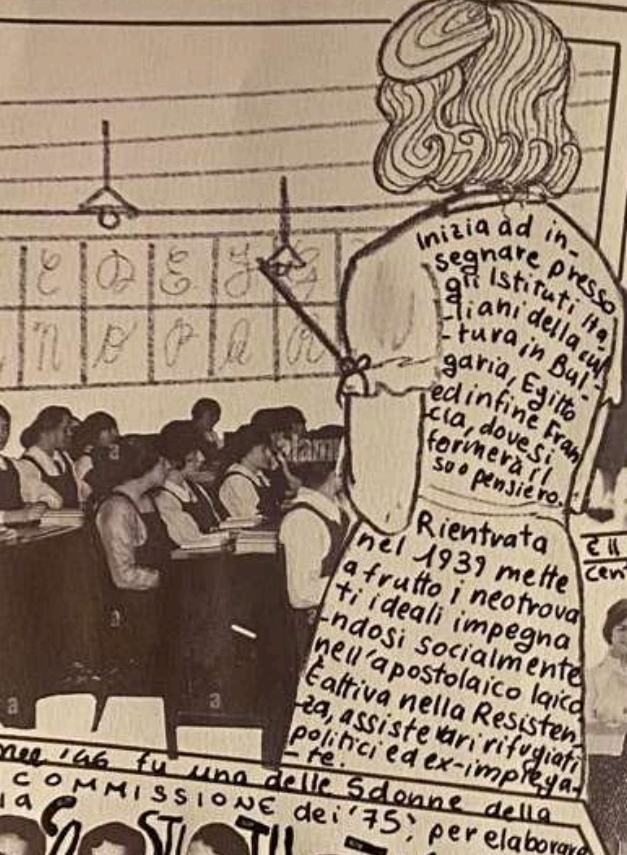 C D E F G
N O P Q R
Inizia ad in-
segnare presso
gli Istituti Ita
-liani della cul
-tura in Bul-
garia, Egitto
ed infine Fran
cia, dove si
formerà il
suo pensiero.
Rientrata
nel 1939 mette
a frutto i neotrova
ti ideali impegna
-ndosi socialmente
nell'apostolaico laico
È attiva nella Resisten
-za, assiste vari rifugiati
politici ed ex-impiega
-te.
È il
cen
nel '46 fu una delle 5 donne della
COMMISSIONE dei '75', per elaborare